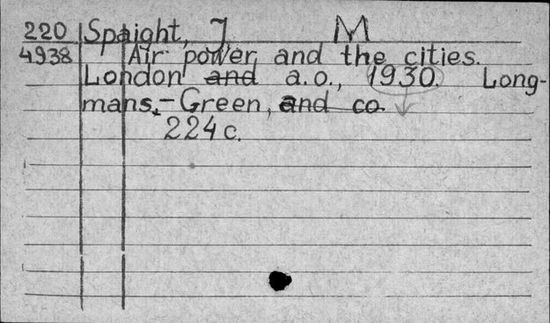 220 Spaight, J M
4938 Air power and the cities.
London and a.o., 1930. Long-
mans,-Green, and co.
224 c.